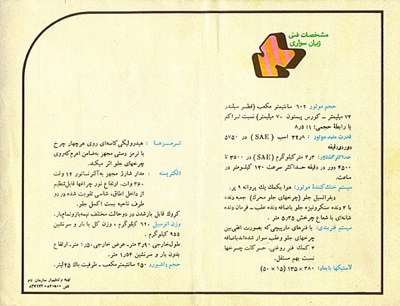 مشخصات فنی
ژیان سواری
حجم موتور ۶۰۲ سانتیمتر مکعب (قطر سیلندر
۷۴ میلیمتر ـ کورس پیستون ۷۰ میلیمتر) نسبت تراکم
یا رابطهٔ حجمی: ۱: ۸٫۵
قدرت مفید موتور: ۳۲٫۸ اسب (SAE) در ۵۷۵۰
دور در دقیقه
حداکثر گشتاور: ۴٫۳ متر کیلوگرم (SAE) در ۳۵۰۰ تا
۴۵۰۰ دور در دقیقه حداکثر سرعت ۱۲۰ کیلومتر در
ساعت.
سیستم خنک کنندهٔ موتور: هوا بکمک یک پروانه ۹ پر.
دیفرانسیل جلو (چرخهای جلو محرک) جعبه دنده
با ۴ دنده سنکرونیزه جلو باضافه دنده عقب ـ فرمان دنده
شانه‌ای با شعاع چرخش ۵٫۳۵ متر.
سیستم فنربندی: با فنرهای مارپیچی که بصورت افقی بین
چرخهای جلو وعقب سوار شده‌اند باضافه
۴ کمک فنر روغنی. حرکات چرخها
نسبت بهم مستقل.
لاستیکها با بعاد: ۳۸۰ × ۱۳۵ (۱۵ × ۵۰)
ترمزها: هیدرولیکی کاسه‌ای روی هر چهار چرخ
با ترمز دستی مجهز به ضامن اهرم که روی
چرخهای جلو اثر میکند.
الکتریسته: مدار شارژ مجهز به آلترناتور ۱۲ ولت
۳۶۰ وات. ارتفاع نور چراغها قابل تنظیم
از داخل اطاق. شاسی تقویت شده در رو
طرف ناحیه بست اکسل جلو.
کروک قابل باز شدن در دو حالت مختلف نیمه باز و تمام باز.
وزن اتومبیل ۶۲۰ کیلوگرم ـ وزن کل با بار و سرنشین
۹۵۵ کیلوگرم.
طول خارجی ۳٫۹۰ متر. عرض خارجی ۱٫۵۰ متر. ارتفاع
بدون بار و سرنشین ۱٫۵۴ متر.
حجم داشبورد ۲۵۰ سانتیمتر مکعب ـ ظرفیت باک ۲۵ لیتر.